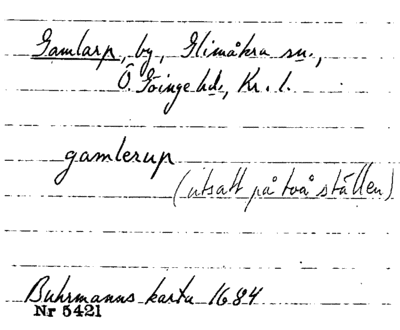 Gamlarp, by, Glimåkra sn.,
Ö. Göinge hd., Kr. l.
gamlerup
(utsatt på två ställen)
Buhrmanns karta 1684
Nr 5421